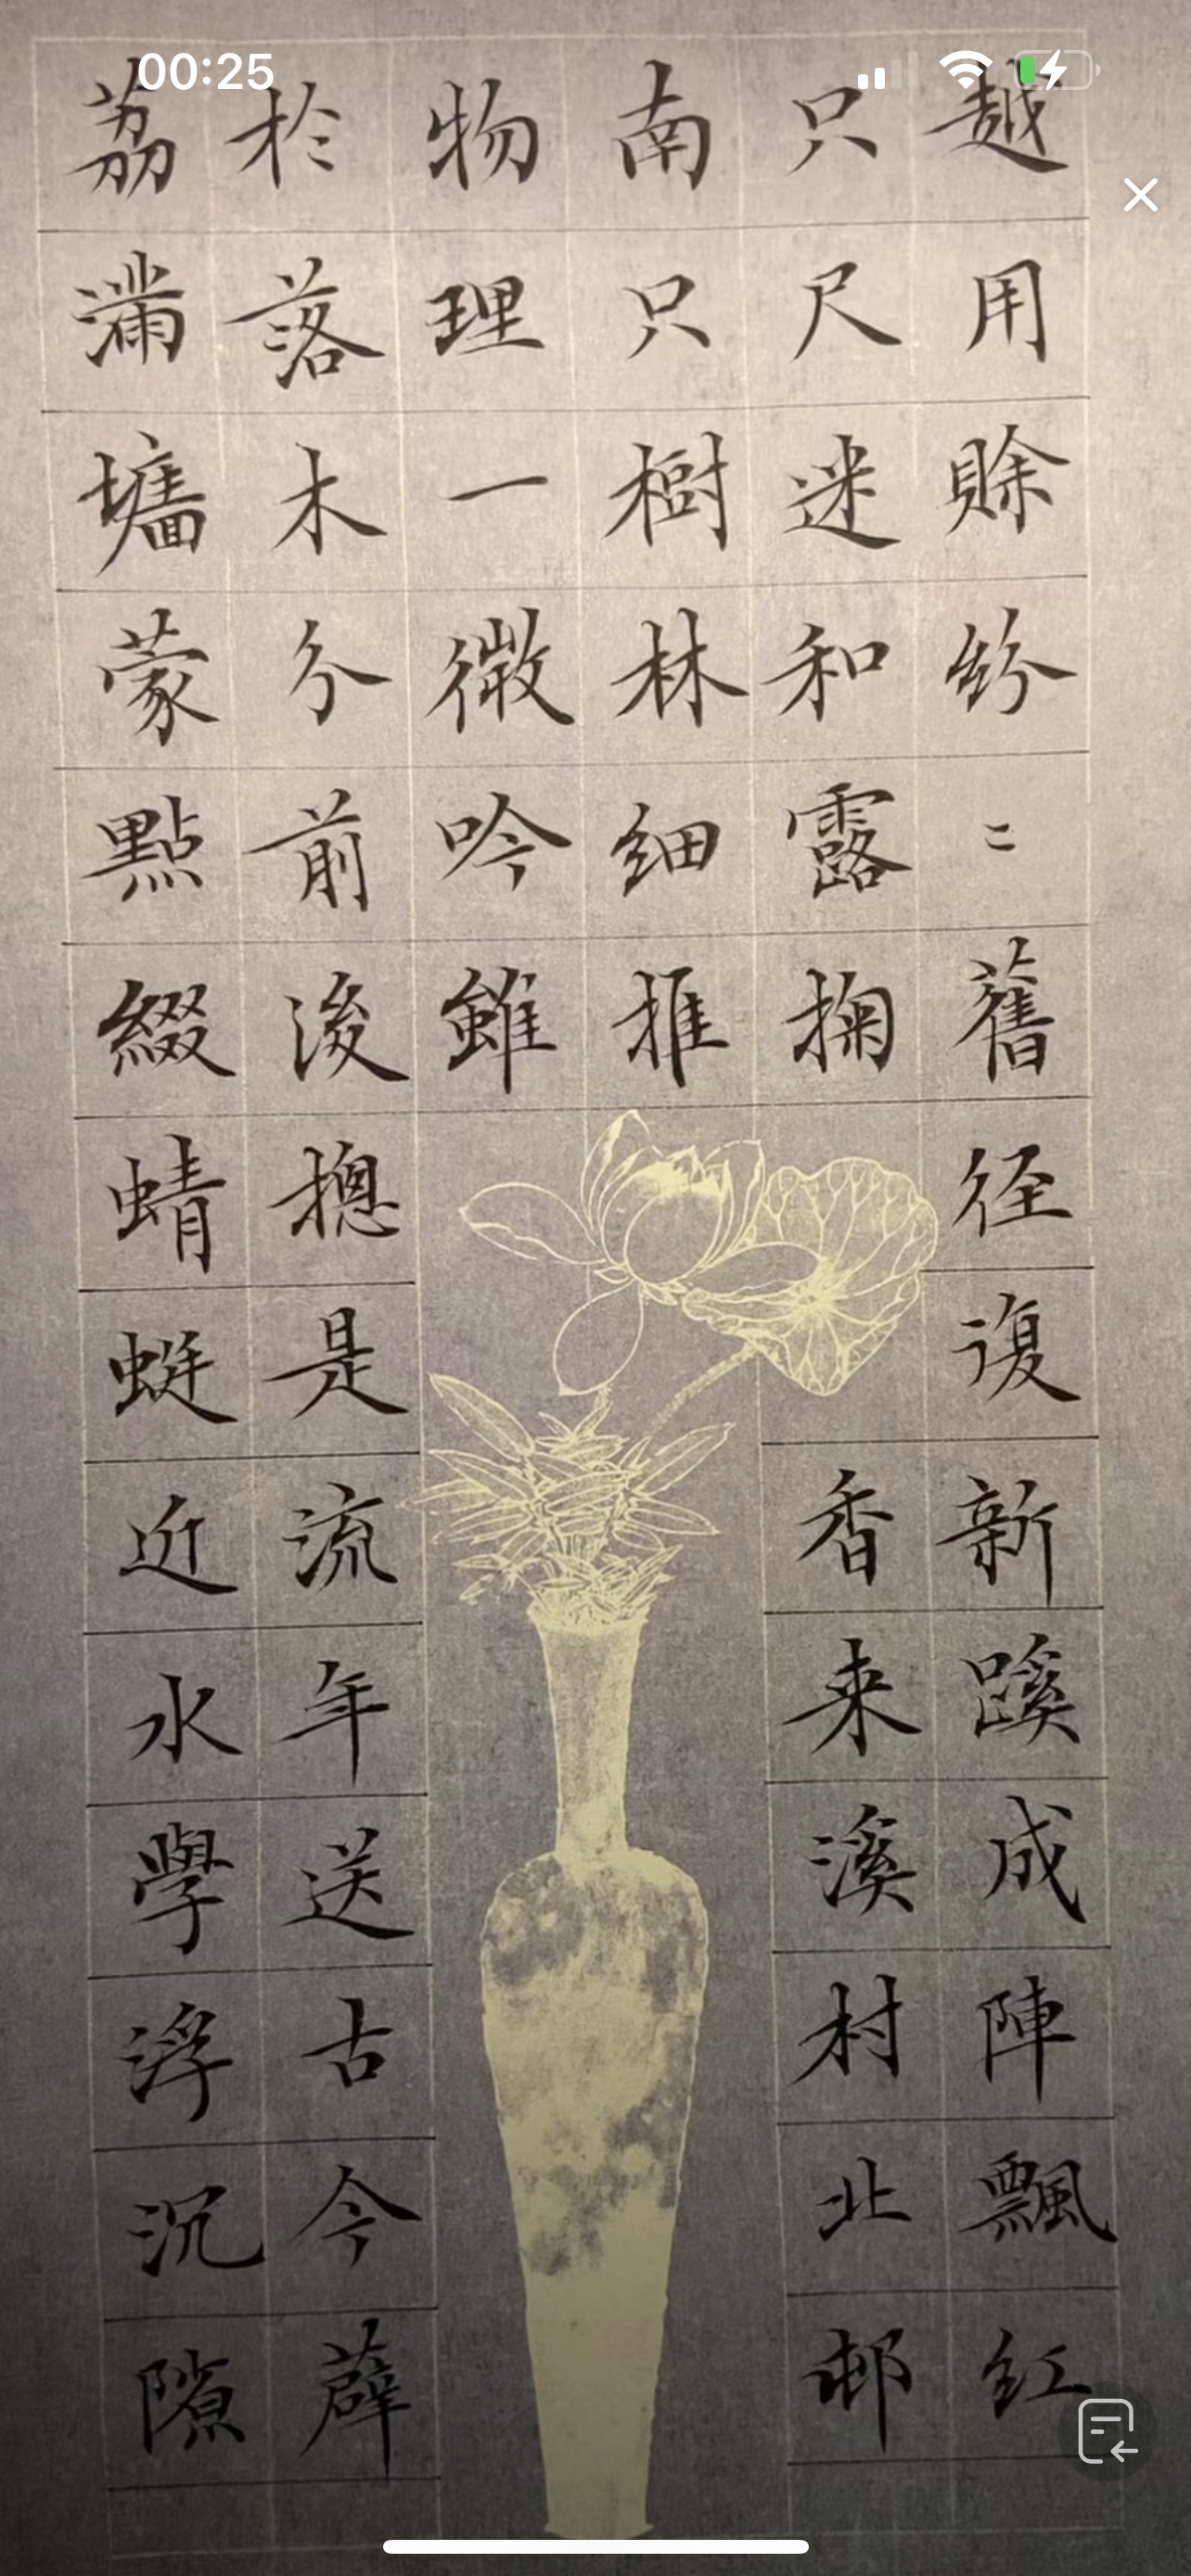 00:25
越用賒紛〻舊径復新蹊成陣飄紅
只尺迷和露掬香来溪村北邨
南只樹林細推
物理一微吟雖
於落木兮前後摠是流年送古今薜
荔滿墻蒙點綴蜻蜓近水學浮沉隙